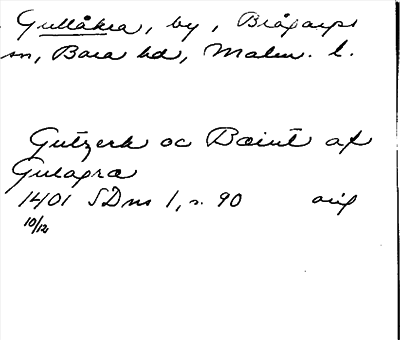 Gullåkra, by, Brågarps
sn, Bara hd, Malm. l.
Gutzerk oc Bœint af
Gulagræ
1401 SDns 1, s. 90 orig
10/12